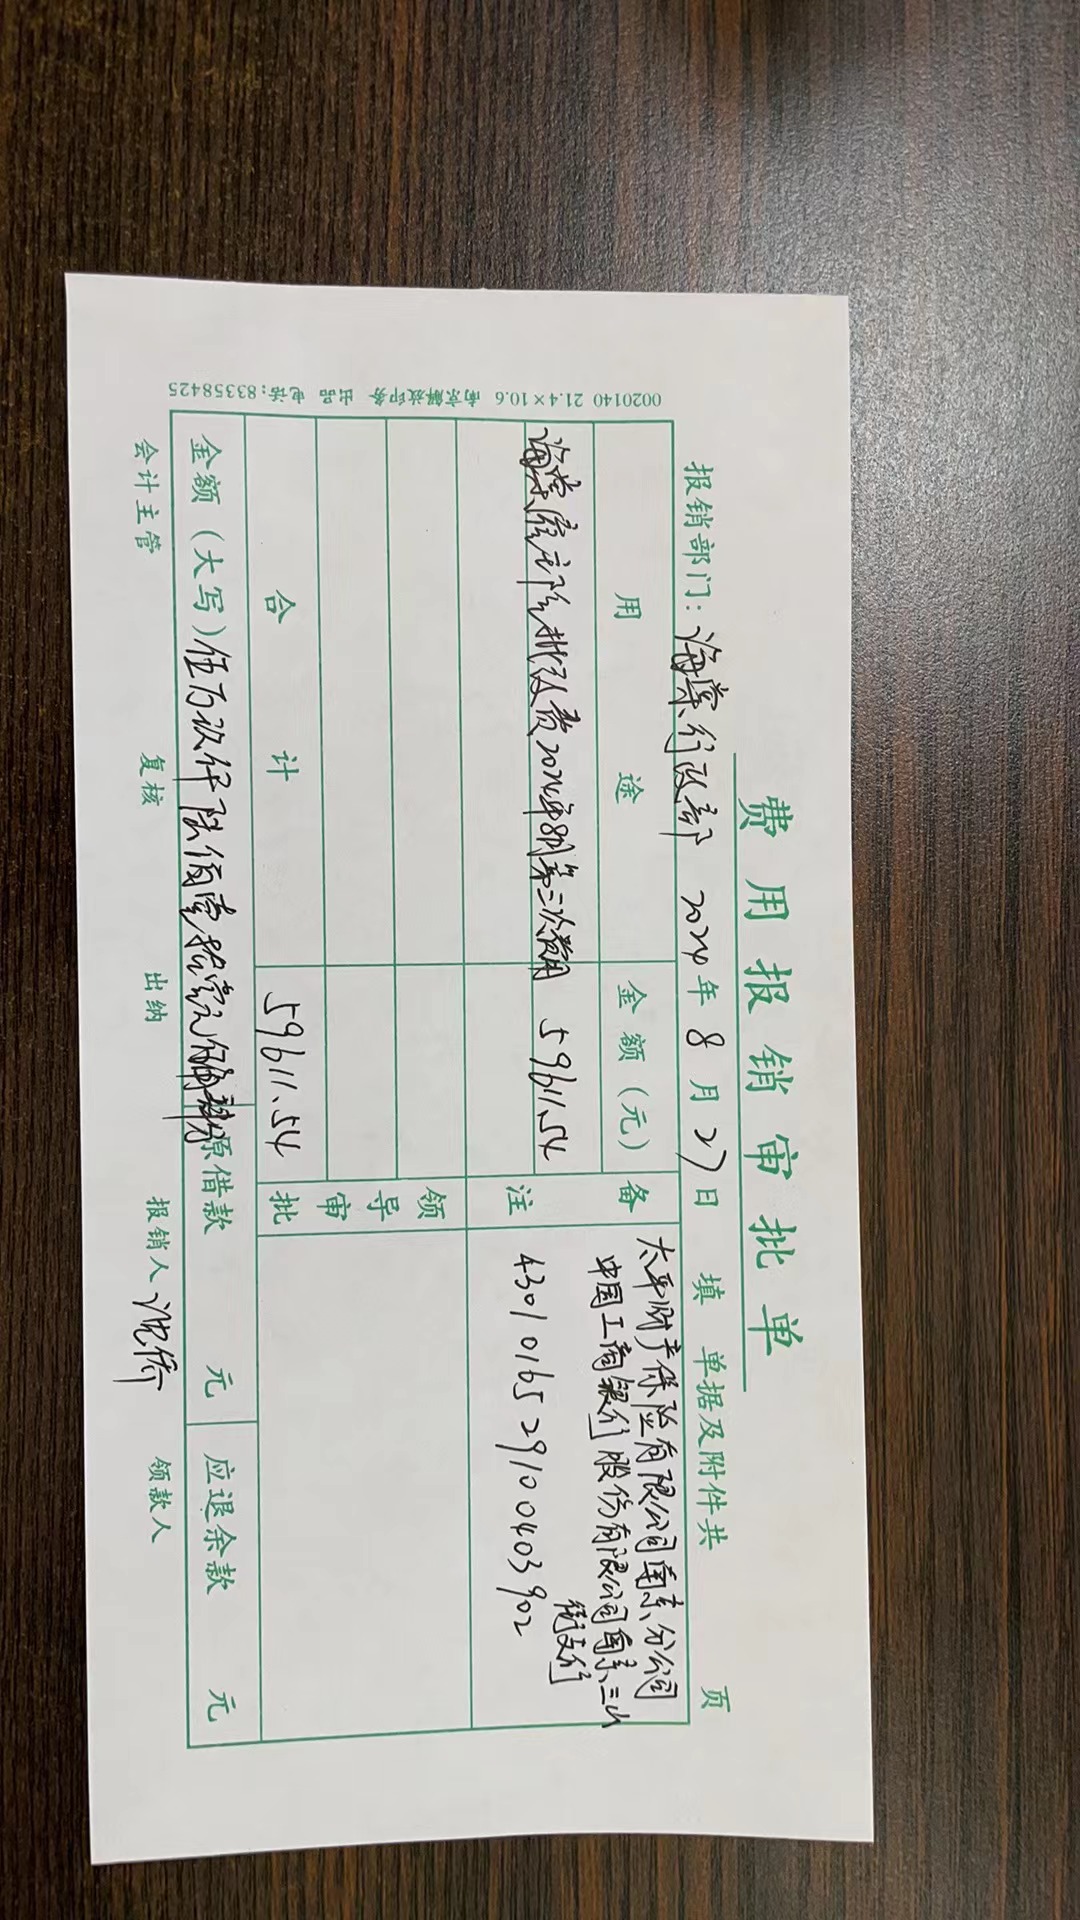 费用报销审批单
报销部门：海棠行政部 2024年8月27日 填 单据及附件共 页
用途 金额（元） 备注 太平财产保险有限公司南京分公司
中国工商银行股份有限公司南京三山
街支行
4301016529100403902
费2024年8月第二次费用 59611.54
领导审批
合计 59611.54
金额（大写）伍万玖仟陆佰壹拾壹元伍角肆分 原借款 元 应退余款 元
会计主管 复核 出纳 报销人 沈侨 领款人
0020140 21.4×10.6 南京解放印务 出品 电话：83358425